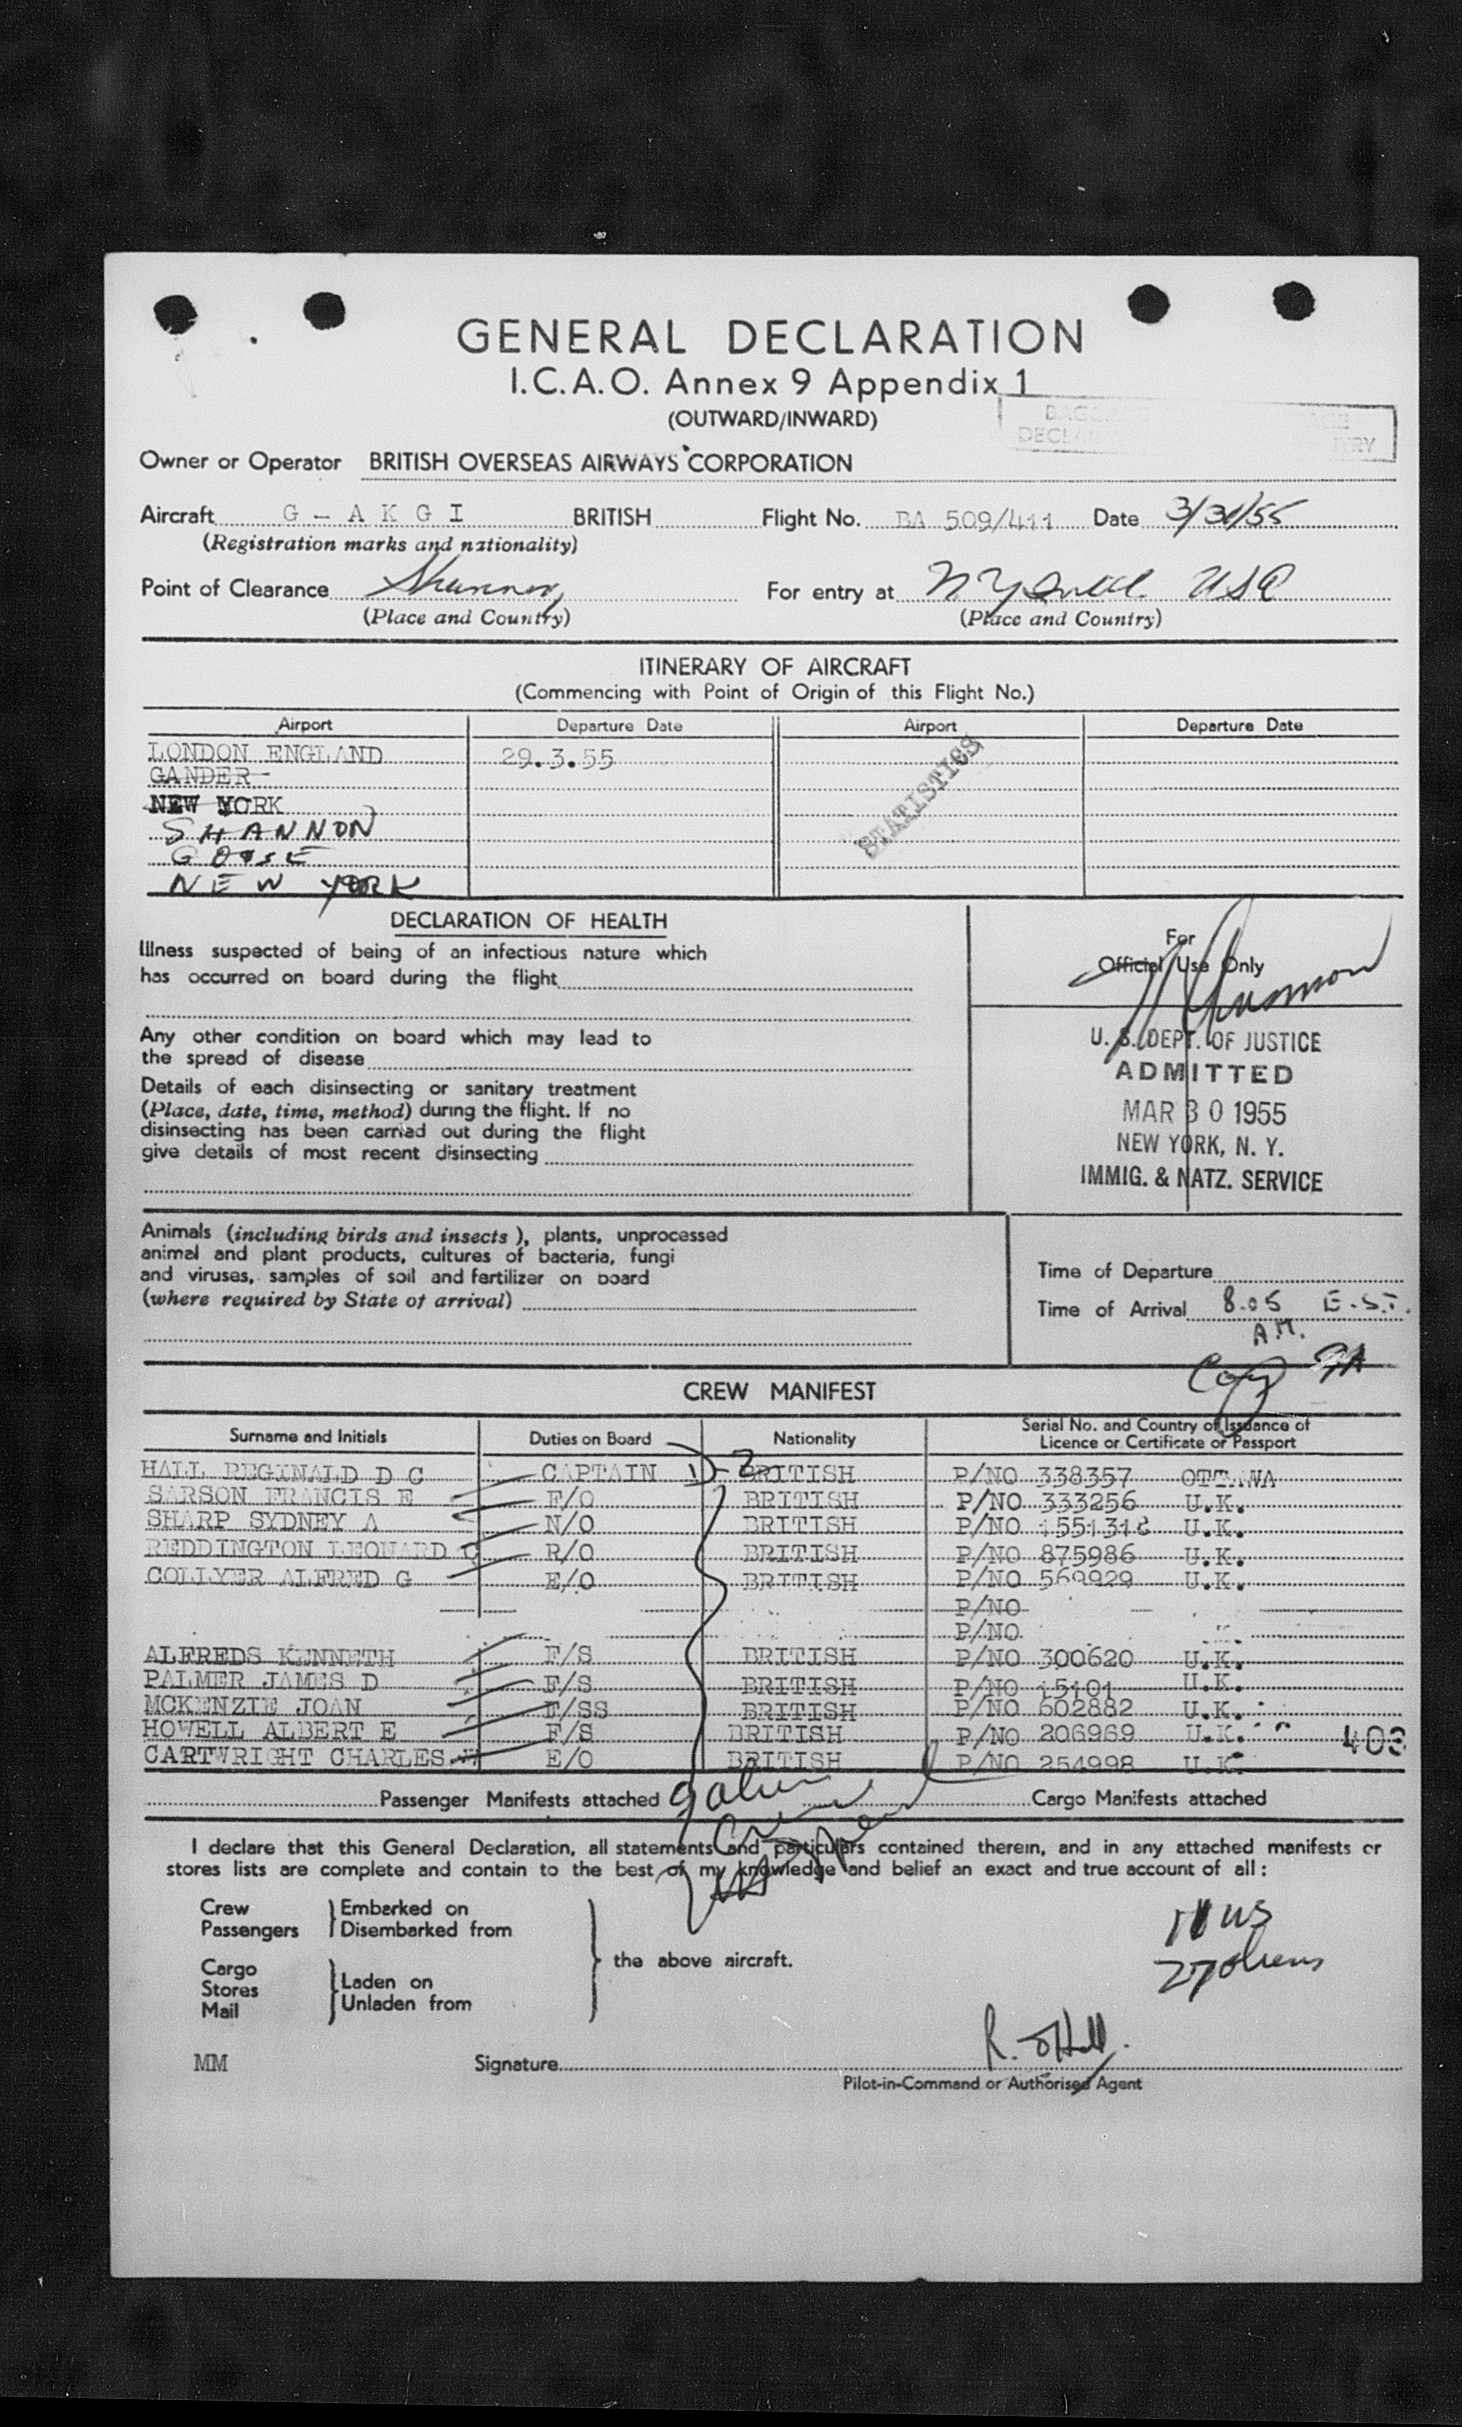 GENERAL DECLARATION
I.C.A.O. Annex 9 Appendix 1
(OUTWARD/INWARD)
Owner or Operator BRITISH OVERSEAS AIRWAYS CORPORATION
Aircraft G - A K G I BRITISH Flight No. BA 509/411 Date 3/30/55
(Registration marks and nationality)
Point of Clearance Shannon For entry at USA
(Place and Country) (Place and Country)
ITINERARY OF AIRCRAFT
(Commencing with Point of Origin of this Flight No.)
Airport Departure Date Airport Departure Date
LONDON ENGLAND 29.3.55
GANDER
NEW YORK
STATISTICS
SHANNON
GOOSE
NEW YORK
DECLARATION OF HEALTH
Illness suspected of being of an infectious nature which
has occurred on board during the flight
Any other condition on board which may lead to
the spread of disease
Details of each disinsecting or sanitary treatment
(Place, date, time, method) during the flight. If no
disinsecting has been carried out during the flight
give details of most recent disinsecting
For
Official Use Only
U. S. DEPT. OF JUSTICE
ADMITTED
MAR 30 1955
NEW YORK, N. Y.
IMMIG. & NATZ. SERVICE
Animals (including birds and insects), plants, unprocessed
animal and plant products, cultures of bacteria, fungi
and viruses, samples of soil and fertilizer on board
(where required by State of arrival)
Time of Departure
Time of Arrival 8.05 E.S.T.
A.M.
Copy
CREW MANIFEST
Surname and Initials Duties on Board Nationality Serial No. and Country of Issuance of
Licence or Certificate or Passport
HALL REGINALD D C CAPTAIN D-2 BRITISH P/NO 338357 OTTAWA
SARSON FRANCIS E F/O BRITISH P/NO 333256 U.K.
SHARP SYDNEY A N/O BRITISH P/NO 1551318 U.K.
REDDINGTON LEONARD C R/O BRITISH P/NO 875986 U.K.
COLLYER ALFRED G E/O BRITISH P/NO 569929 U.K.
P/NO
P/NO
ALFREDS KENNETH F/S BRITISH P/NO 300620 U.K.
PALMER JAMES D F/S BRITISH P/NO 15101 U.K.
MCKENZIE JOAN F/SS BRITISH P/NO 602882 U.K.
HOWELL ALBERT E F/S BRITISH P/NO 206969 U.K. 403
CARTWRIGHT CHARLES W E/O BRITISH P/NO 254998 U.K.
Passenger Manifests attached Cargo Manifests attached
I declare that this General Declaration, all statements and particulars contained therein, and in any attached manifests or
stores lists are complete and contain to the best of my knowledge and belief an exact and true account of all:
Crew Embarked on
Passengers Disembarked from
the above aircraft.
Cargo
Stores Laden on
Mail Unladen from
11 US
27 aliens
MM Signature R. D Hall.
Pilot-in-Command or Authorised Agent